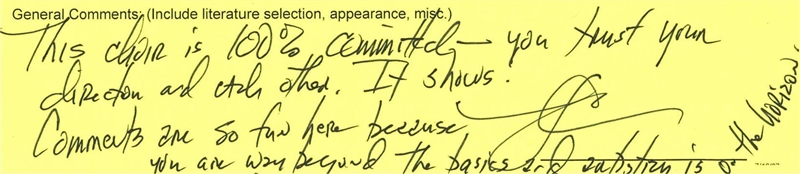 General Comments: (Include literature selection, appearance, misc.)
This choir is 100% committed — you trust your
director and each other. It shows.
Comments are so fun here because
you are way beyond the basics and artistry is on the HORIZON.